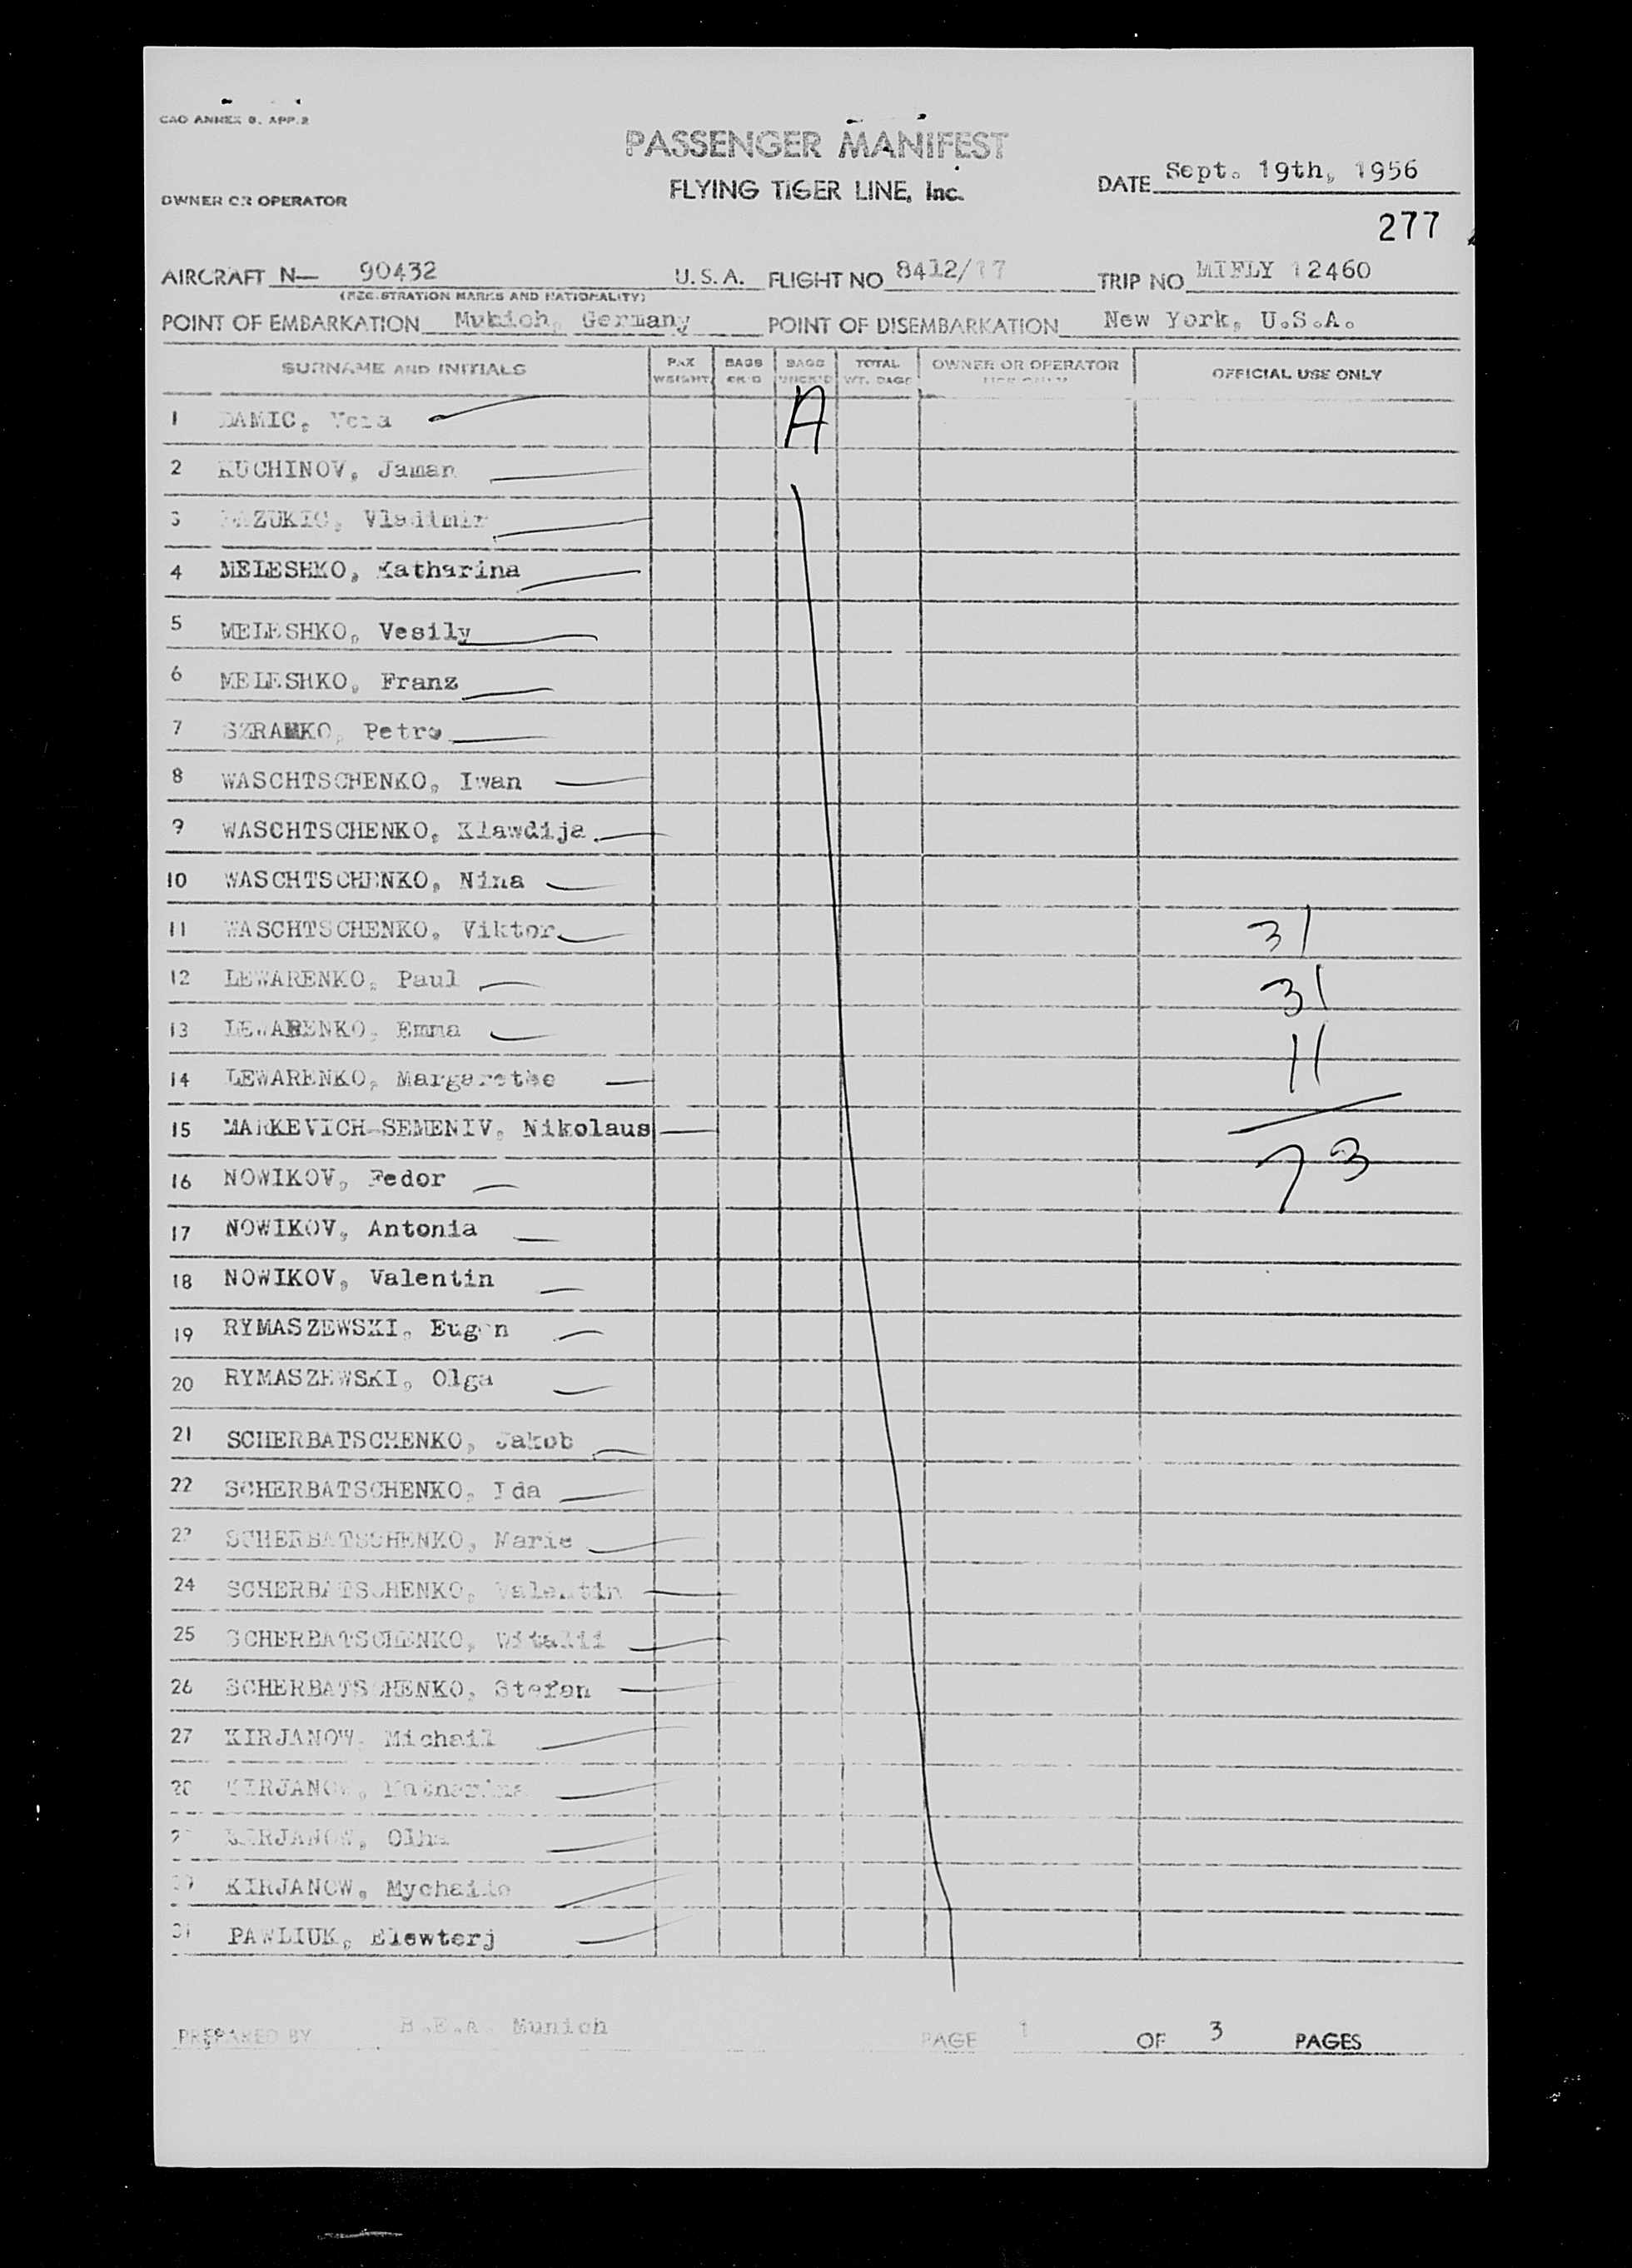 CAO ANNEX 9. APP.2
PASSENGER MANIFEST
FLYING TIGER LINE, Inc.
DATE Sept. 19th, 1956
OWNER OR OPERATOR
277
AIRCRAFT N— 90432 U.S.A. FLIGHT NO 8412/17 TRIP NO MIFLY 12460
(REGISTRATION MARKS AND NATIONALITY)
POINT OF EMBARKATION Munich, Germany POINT OF DISEMBARKATION New York, U.S.A.
SURNAME AND INITIALS PAX WEIGHT BAGS CK'D BAGS UNCK'D TOTAL WT. BAGS OWNER OR OPERATOR USE ONLY OFFICIAL USE ONLY
1 DAMIC, Vera A
2 KUCHINOV, Jaman
3 Vladimir
4 MELESHKO, Katharina
5 MELESHKO, Vesily
6 MELESHKO, Franz
7 SZRAMKO, Petro
8 WASCHTSCHENKO, Iwan
9 WASCHTSCHENKO, Klawdija
10 WASCHTSCHENKO, Nina
11 WASCHTSCHENKO, Viktor 31
12 LEWARENKO, Paul 31
13 LEWARENKO, Emma 11
14 LEWARENKO, Margarethe
15 MARKEVICH-SEMENIV, Nikolaus 73
16 NOWIKOV, Fedor
17 NOWIKOV, Antonia
18 NOWIKOV, Valentin
19 RYMASZEWSKI, Eugen
20 RYMASZEWSKI, Olga
21 SCHERBATSCHENKO, Jakob
22 SCHERBATSCHENKO, Ida
23 SCHERBATSCHENKO, Marie
24 SCHERBATSCHENKO, Valentin
25 SCHERBATSCHENKO, Witalii
26 SCHERBATSCHENKO, Stefan
27 KIRJANOW, Michail
28 KIRJANOW, Katharina
29 KIRJANOW, Olha
30 KIRJANOW, Mychailo
31 PAWLIUK, Elewterj
PREPARED BY B.E.A. Munich PAGE 1 OF 3 PAGES